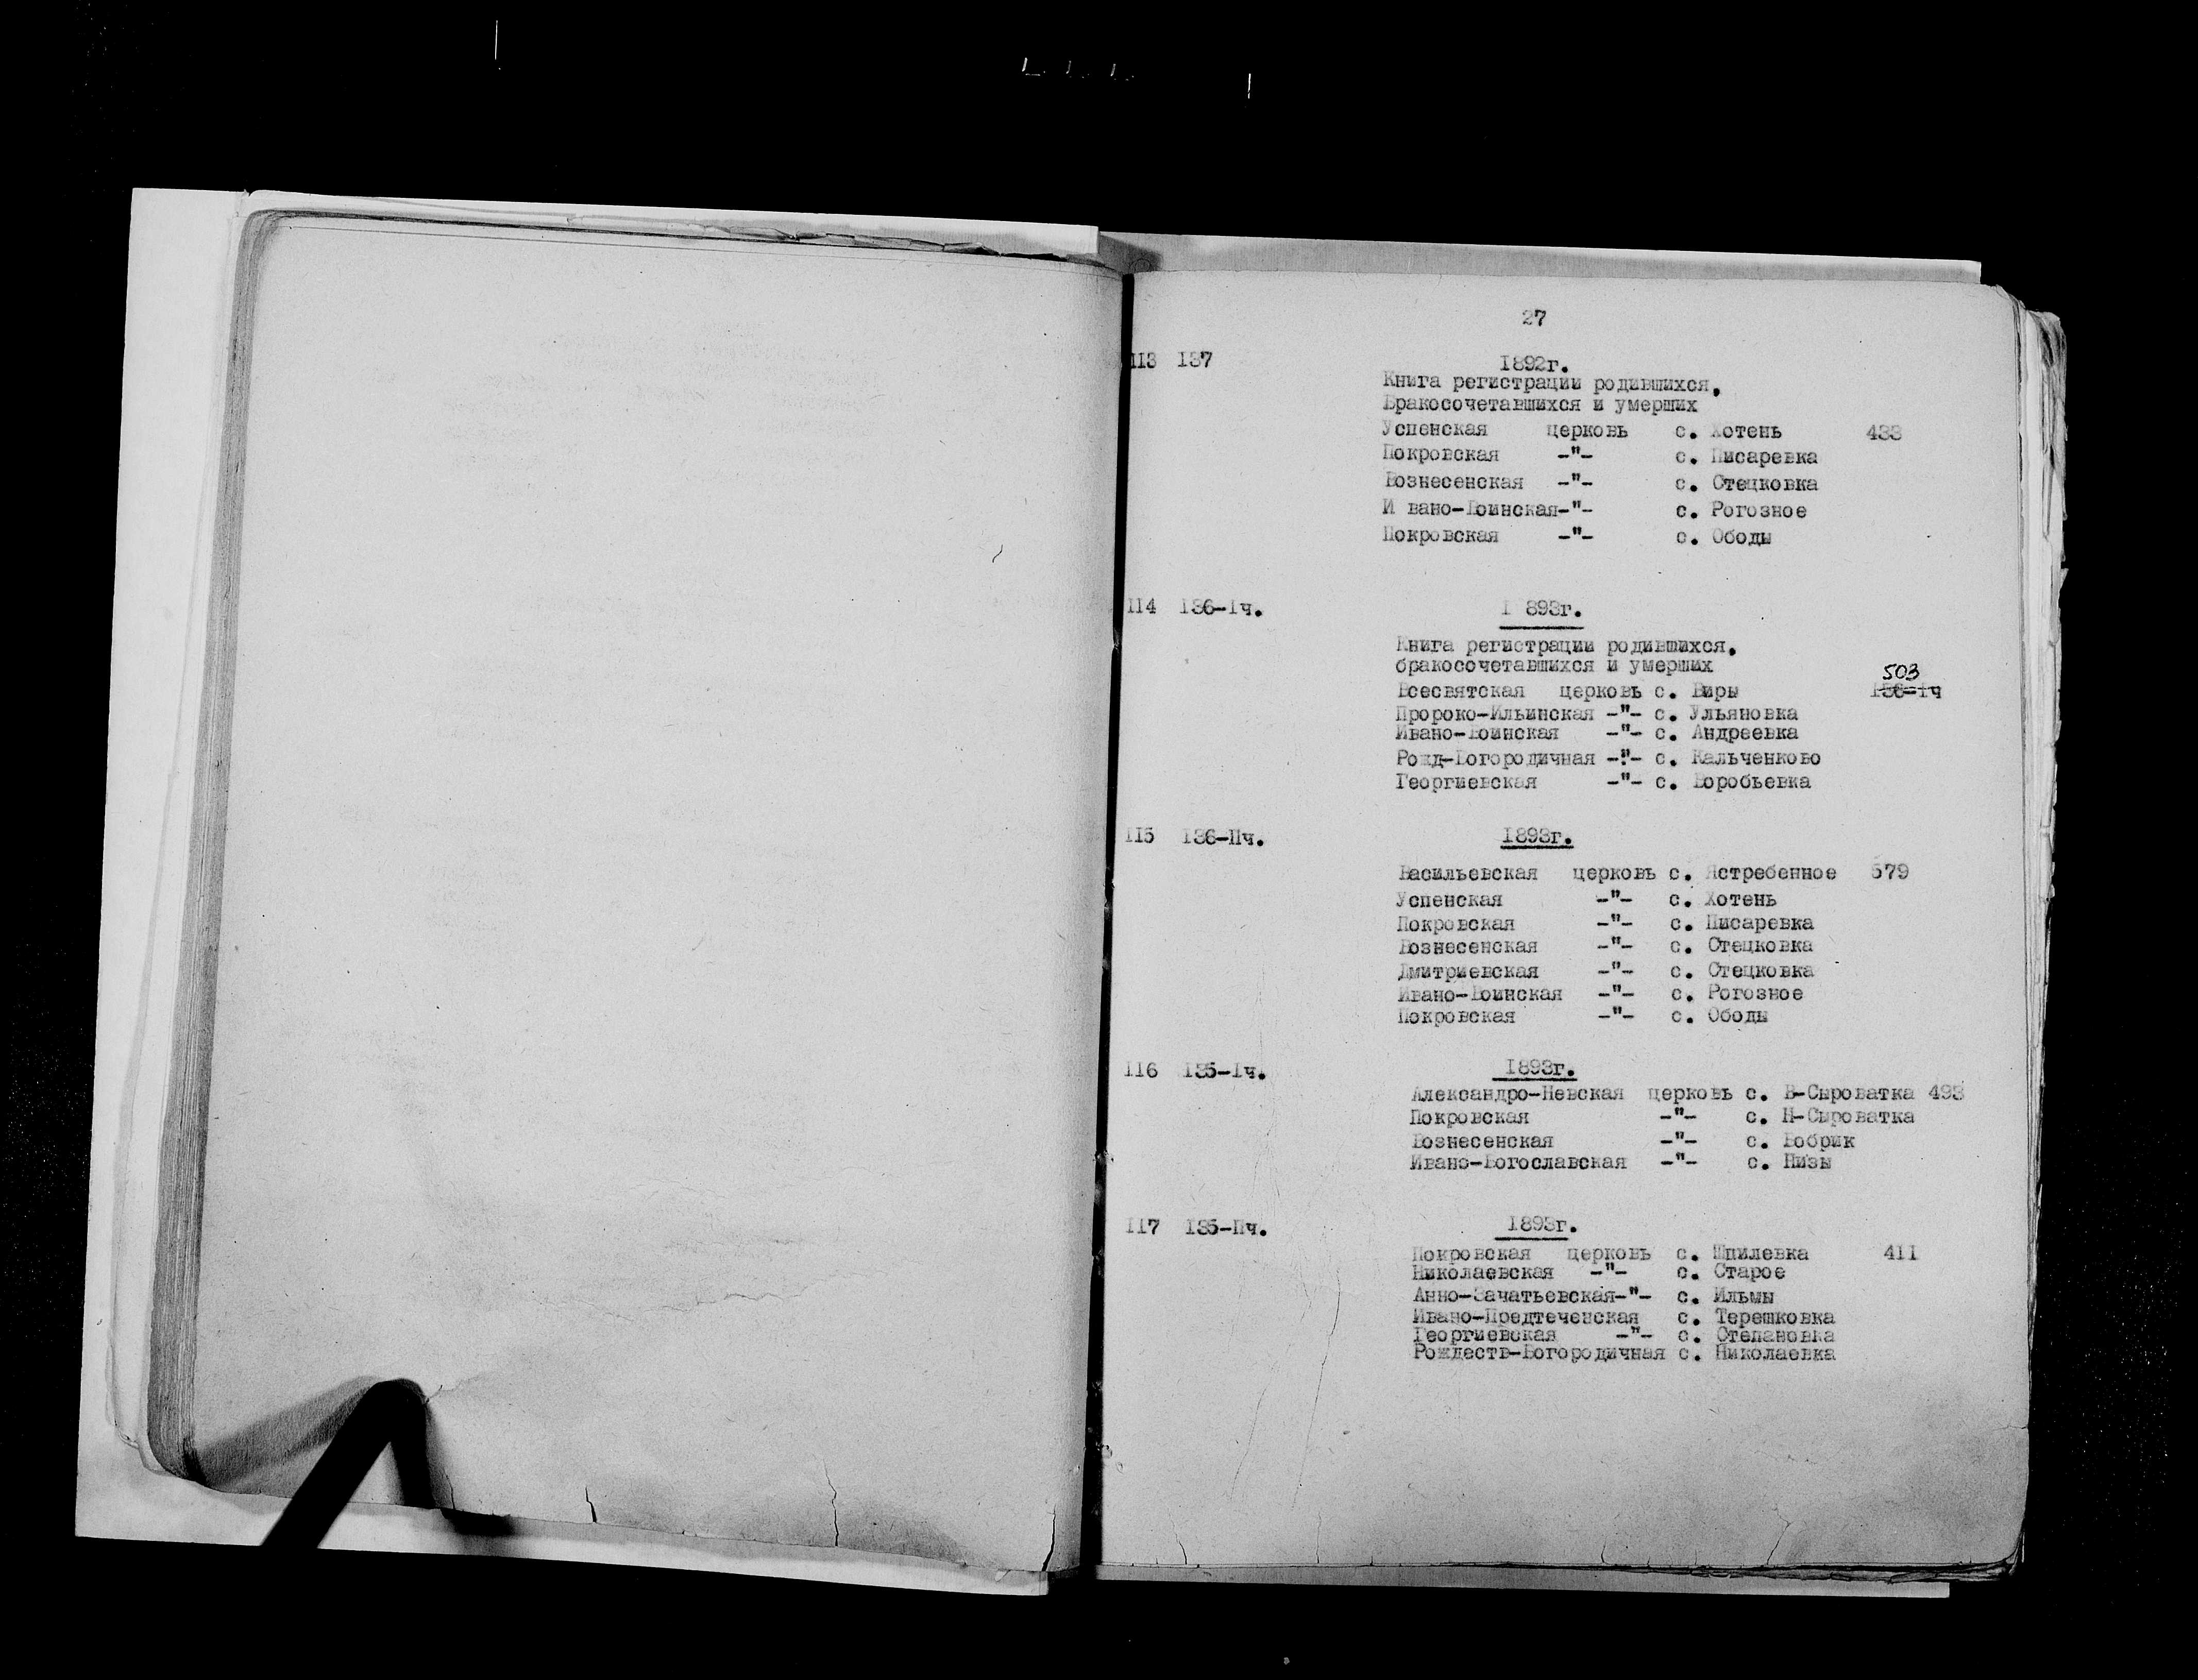 27
113 137 1892г.
Книга регистрации родившихся,
Бракосочетавшихся и умерших
Успенская церковь с. Хотень 433
Покровская -"- с. Писаревка
Вознесенская -"- с. Стецковка
И вано-Воинская-"- с. Рогозное
Покровская -"- с. Ободы
114 136-Iч. I 893г.
Книга регистрации родившихся,
бракосочетавшихся и умерших
503
Всесвятская церковь с. Виры 136-Iч
Пророко-Ильинская -"- с. Ульяновка
Ивано-Воинская -"- с. Андреевка
Рожд-Богородичная -"- с. Кальченково
Георгиевская -"- с. Воробьевка
115 136-IIч. 1893г.
Васильевская церковь с. Ястребенное 579
Успенская -"- с. Хотень
Покровская -"- с. Писаревка
Вознесенская -"- с. Стецковка
Дмитриевская -"- с. Стецковка
Ивано-Воинская -"- с. Рогозное
Покровская -"- с. Ободы
116 135-Iч. 1893г.
Александро-Невская церковь с. В-Сыроватка 493
Покровская -"- с. Н-Сыроватка
Вознесенская -"- с. Бобрик
Ивано-Богославская -"- с. Низы
117 135-IIч. 1893г.
Покровская церковь с. Шпилевка 411
Николаевская -"- с. Старое
Анно-Зачатьевская-"- с. Ильмы
Ивано-Предтеченская с. Терешковка
Георгиевская -"- с. Степановка
Рождеств-Богородичная с. Николаевка